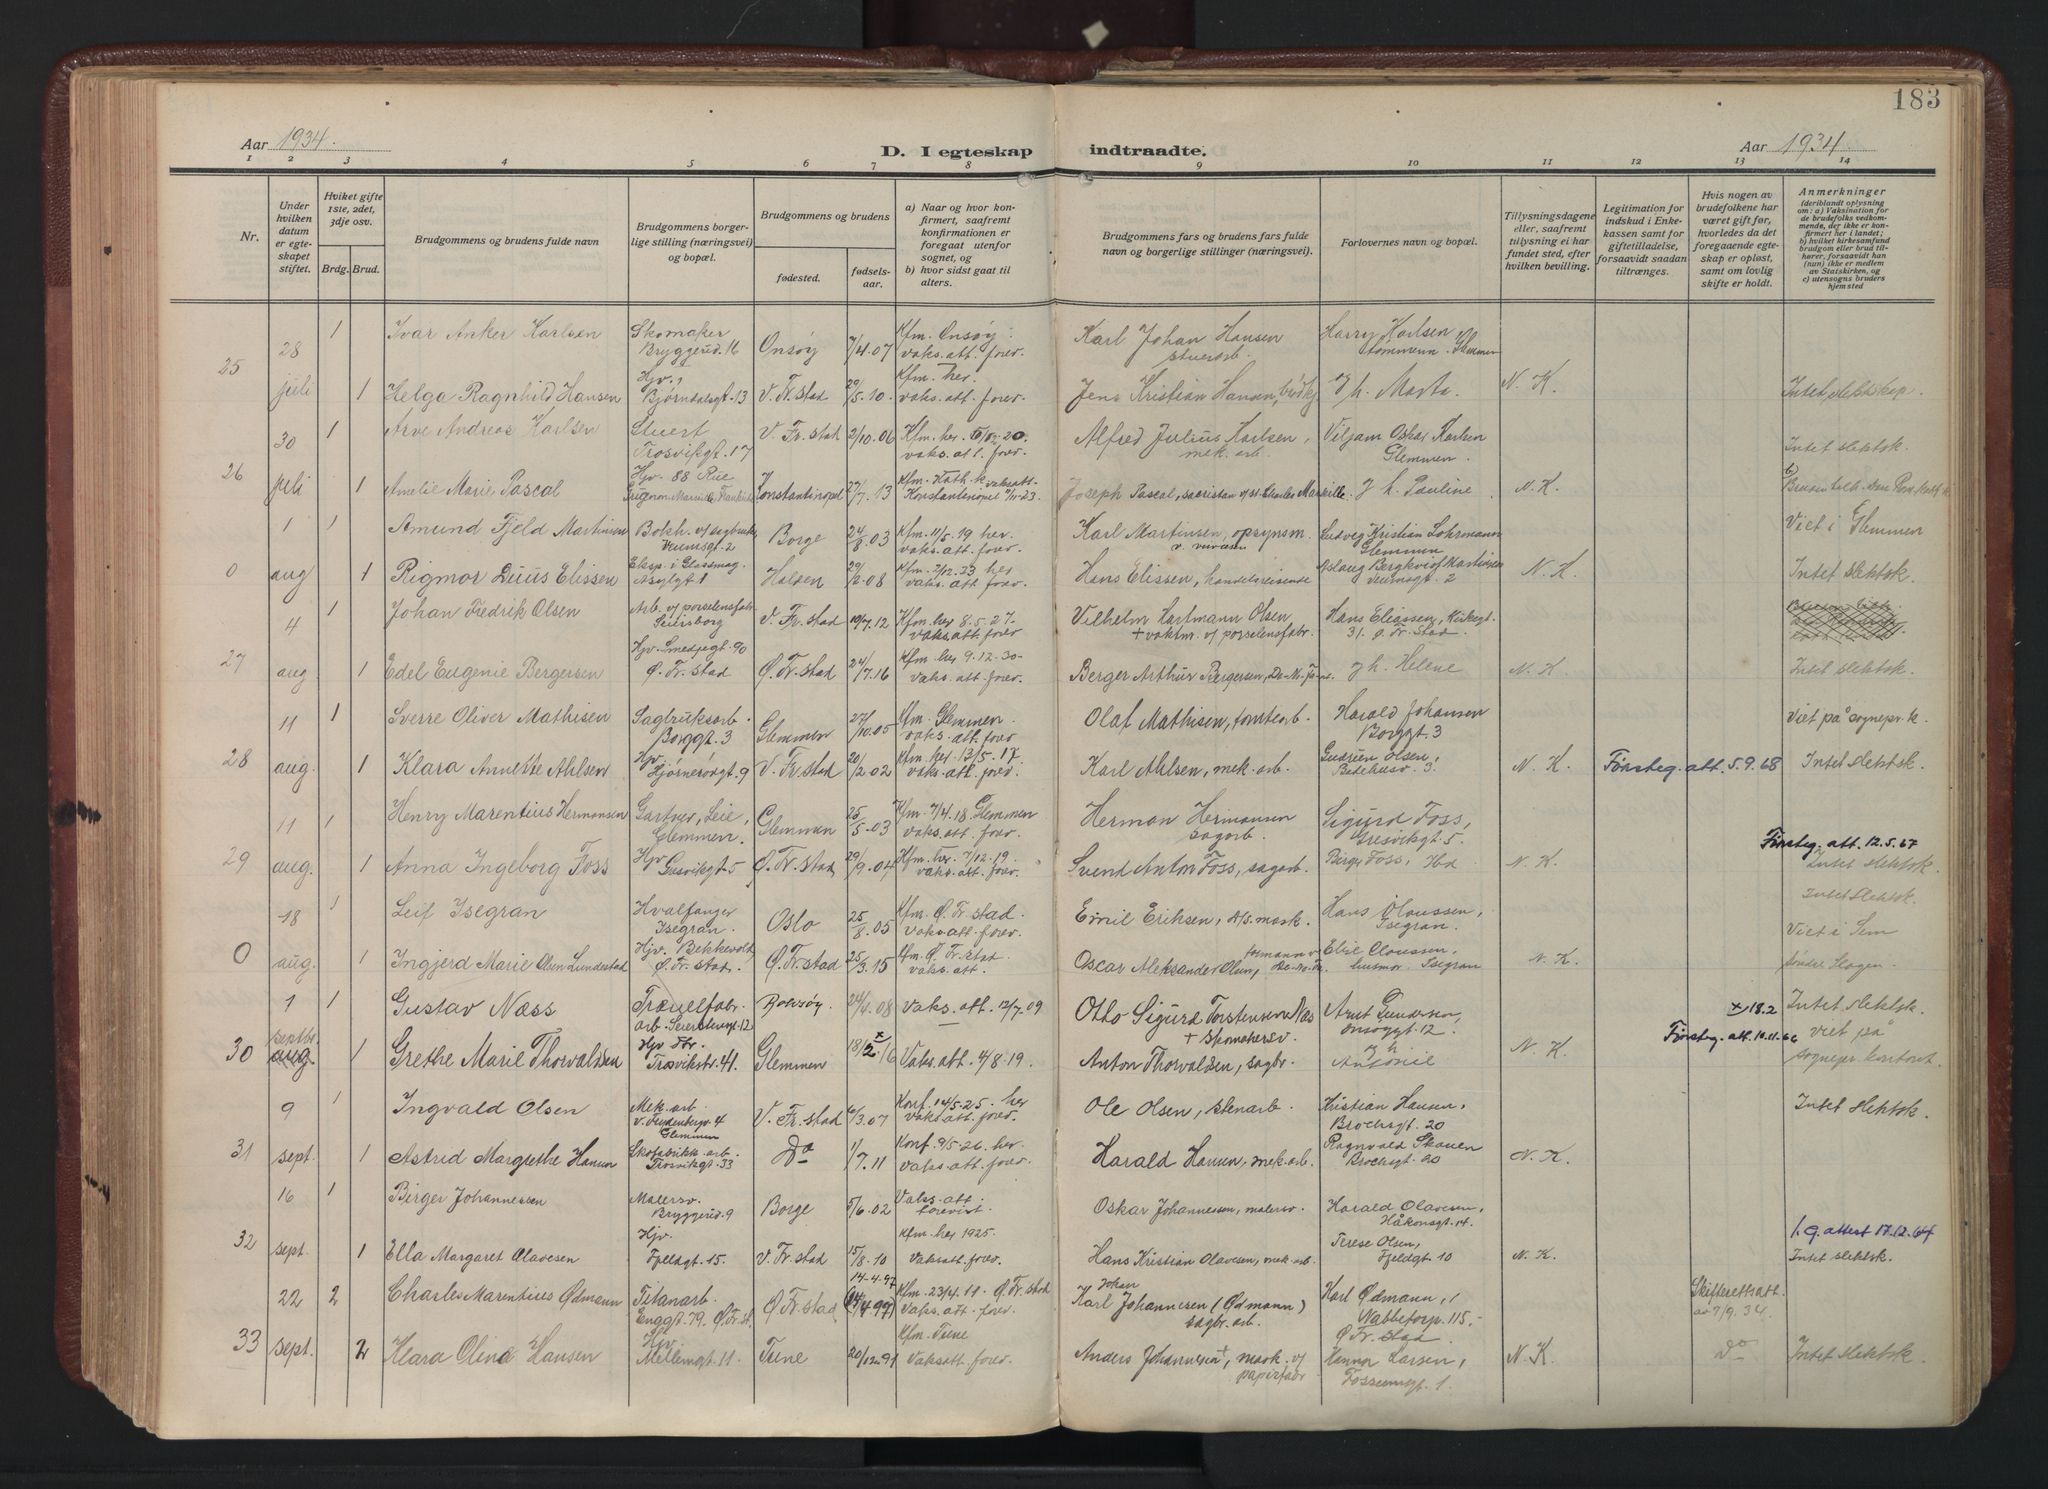 183
Aar 1934.
D. I egteskap indtraadte.
Aar 1934
1 2 3 4 5 6 7 8 9 10 11 12 13 14
Nr.
Under hvilken datum er egteskapet stiftet.
Hviket gifte 1ste, 2det, 3dje osv.
Brdg. Brud.
Brudgommens og brudens fulde navn
Brudgommens borgerlige stilling (næringsvei) og bopæl.
Brudgommens og brudens
fødested.
fødselsaar.
a) Naar og hvor konfirmert, saafremt konfirmationen er foregaat utenfor sognet, og
b) hvor sidst gaat til alters.
Brudgommens fars og brudens fars fulde navn og borgerlige stillinger (næringsvei).
Forlovernes navn og bopæl.
Tillysningsdagene eller, saafremt tillysning ei har fundet sted, efter hvilken bevilling.
Legitimation for indskud i Enkekassen samt for giftetilladelse, forsaavidt saadan tiltrænges.
Hvis nogen av brudefolkene har været gift før, hvorledes da det foregaaende egteskap er opløst, samt om lovlig skifte er holdt.
Anmerkninger (deriblandt oplysning om: a) Vaksination for de brudefolks vedkommende, der ikke er konfirmert her i landet; b) hvilket kirkesamfund brudgom eller brud tilhører, forsaavidt han (hun) ikke er medlem av Statskirken, og c) utensogns bruders hjemsted
25 28 juli 1 Ivar Anker Karlsen Skomaker Bryggerid. 16 Onsøy 7/4.07 Kfm. Onsøy. vaks. att. forev. Karl Johan Hansen Harry Karlsen
1 Helga Ragnhild Hansen Hjv. Bjørndalsgt. 13 V. Fr. stad 29/5.10. Kfm. her. vaks. att. forev. Jens Kristian Hansen, J h. Marta. N. K. Intet slektskap.
26 30 juli 1 Arve Andreas Karlsen Stuert Trosvikgt. 17 V. Fr. stad 2/10.06 Kfm. her. vaks. att. forev. Alfred Julius Karlsen, mek. arb. Viljam Oskar Karlsen Glemmen. Intet slektsk.
1 Amelie Marie Pascal Hjv. 88 Rue Konstantinopel 27/7.13 Joseph Pascal, J h. Pauline N. K.
0 1 aug 1 Amund Fjeld Martinsen Bokh. v/ sagbruk, Veumsgt. 2 Borge 24/8.03 Kfm. 11/5.19 her vaks. att. forev. Karl Martinsen, opsynsm. Ludvig Kristian Lohrmann Glemmen Viet i Glemmen
1 Rigmor Duus Elissen Eksp. i Glassmag. Asylgt. 1 Halden 29/2.08 Kfm. 2/12.23 her vaks. att. forev. Hans Elissen, handelsreisende Aslaug Bergkvist Martinsen Veumsgt. 2 N. K. Intet slektsk.
27 4 aug 1 Johan Fredrik Olsen Arb. v/ porselensfabr. Seiersborg V. Fr. stad 19/7.12 Kfm. her 8.5.27. vaks. att. forev. Vilhelm Hartmann Olsen + vaktm. v/ porselensfabr. Hans Eliassen, Kirkegt. 31. Ø. Fr. stad.
1 Edel Eugenie Bergersen Hjv. Smedjegt. 90 Ø. Fr. stad Ø. Fr. stad 24/7.16 Kfm. her 9.12.30. Vaks. att. forev. Berger Arthur Bergersen, J h. Helene N. K. Intet slektsk.
28 11 aug. 1 Sverre Oliver Mathisen Sagbruksarb. Borggt. 3 Glemmen 27/10.05 Kfm. Glemmen. vaks. att. forev. Olaf Mathisen, tomtearb. Harald Johansen Borggt. 3 Viet på sognepr. k.
1 Klara Annette Ahlsen Hjv. Hjørnerødgt. 9 V. Fr. stad 20/2.02 Kfm. her. 13/5.17. vaks. att. forev. Karl Ahlsen, mek. arb. Gudrun Olsen, Bedehusv. 3. N. K. Førsteg. att. 5.9.68 Intet slektsk.
29 11 aug. 1 Henry Marentius Hermansen Gartner, Leie, Glemmen. Glemmen 25/5.03 Kfm. 7/4.18 Glemmen vaks. att. forev. Herman Hermansen sagarb. Sigurd Foss, Gresvikgt. 5. Førsteg. att. 12.5.67
1 Anna Ingeborg Foss Hjv Gresvikgt. 5 Ø. Fr. stad 29/9.04 Kfm. her. 7/12.19. vaks. att. forev. Svend Anton Foss, sagarb. Birger Foss, N. K. Intet slektsk.
0 18 aug. 1 Leif Isegran Hvalfanger Isegran. Oslo 25/8.05 Kfm. Ø. Fr. stad. Vaks. att. forev. Emil Eriksen, Hans Olaussen, Isegran. Intet slektsk. Viet i Sem
1 Ingjerd Marie Olsen Lundestad Hjv. Bekkevold Ø. Fr. stad. Ø. Fr. stad 25/3.15 Kfm. Ø. Fr. stad vaks. att. Oscar Aleksander Olsen, Elise Olaussen, husmor. Isegran N. K. søndre Slagen.
30 1 septbr. aug. 1 Gustav Næss Trævelfabr. arb. Seierstensgt. 12 24/4.08 Vaks. att. 12/7.09 Otto Sigurd Torstensen Næs + skomakersv. Arnt Gundersen, Onsøygt. 12 x 18.2 Intet slektsk. viet på
1 Grethe Marie Thorvaldsen Hjv Fbr. Trosvikstr. 41. Glemmen 18/2 x 16 Vaks. att. 4/8.19. Anton Thorvaldsen, sagbr. J h Antonie N. K. Førsteg. att. 10.11.66 sognepr. kontoret.
31 9 sept. 1 Ingvald Olsen Mek. arb. Glemmen V. Fr. stad 6/3.07 Konf. 14/5.25. her vaks. att. forev. Ole Olsen, stenarb. Kristian Hansen, Brochsgt. 20 Intet slektsk.
1 Astrid Margrethe Hansen Skofabrikk arb. Trosvikgt. 33 Do 1/7.11 Konf. 9/5.26. her. Vaks. att. forev. Harald Hansen, mek. arb. Ragnvald Skauen Brochsgt. 20 N. K.
32 16 sept. 1 Birger Johannessen Malersv. Bryggerid. 9 Borge 5/6.02 Vaks. att. forevist. Oskar Johannessen, malersv. Harald Olavesen, Håkonsgt. 14. 1. g. attest 17.12.64
1 Ella Margaret Olavesen Hjv. Fjeldgt. 15. V. Fr. stad 15/8.10 Kfm. her 1925. Vaksatt. forev. Hans Kristian Olavesen, mek. arb. Terese Olsen, Fjeldgt. 10 N. K. Intet slektsk.
33 22 sept. 2 Charles Marentius Ødmann Titanarb. Enggt. 79. Ø. Fr. st. Ø. Fr. stad 14.4.97 (14/4.97) Kfm. 23/4.11. Ø. Fr. stad Vaks. att. forev. Karl Johan Johannesen (Ødmann) sagbr. arb. Karl Ødmann, Wabbetorp. 115. Ø Fr. stad Skifterettsatt. av 7/9.34.
2 Klara Olina Hansen Hjv. Mellemgt. 11. Tune 20/12.91 Kfm. Tune Vaksatt. forev. Anders Johannesen +, mask. v/ papirfabr Hanna Larsen, Fossumsgt. 1. N. K. Do Intet slektsk.